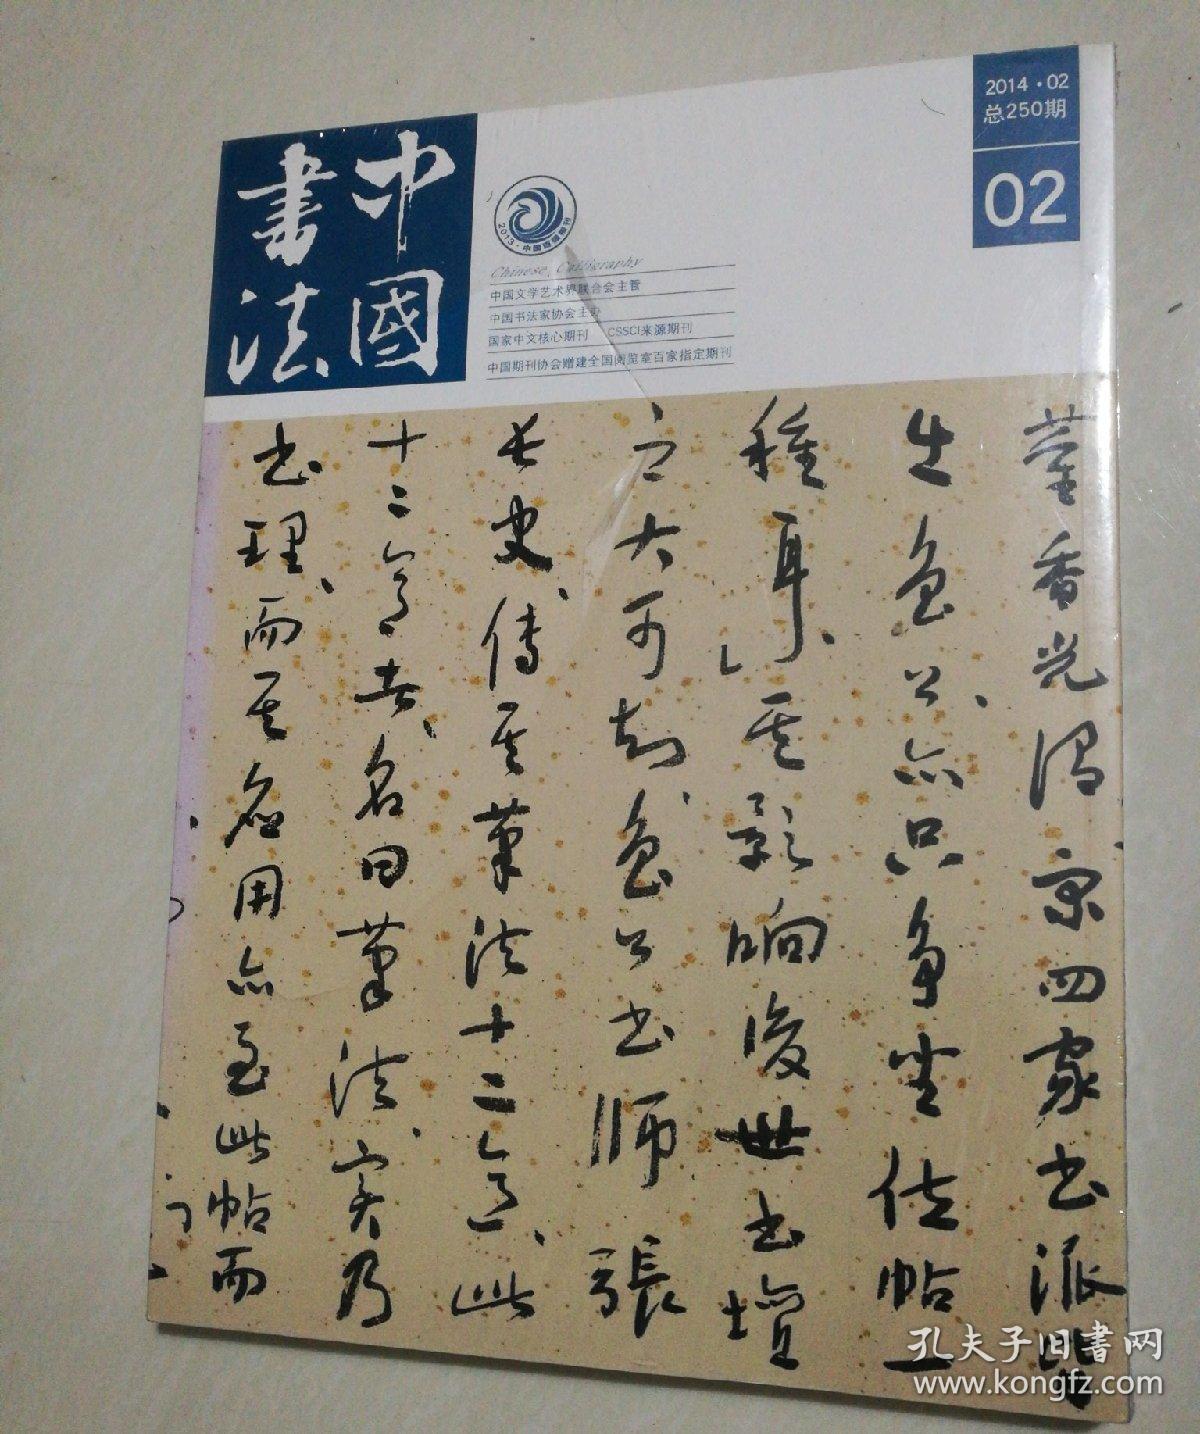 2014·02
总250期
02
中國
書法
2013·中国
Chinese Calligraphy
中国文学艺术界联合会主管
中国书法家协会主办
国家中文核心期刊 CSSCI来源期刊
中国期刊协会赠建全国阅览室百家指定期刊
董香光渭宋四家书派皆
生魯公亦只争坐位帖一
種耳其影响後世书壇
之大可知魯公书师張
长史傳其筆法十二意此
十二意者名曰筆法实乃
书理而其应用亦至此帖而
孔夫子旧书网
www.kongfz.com